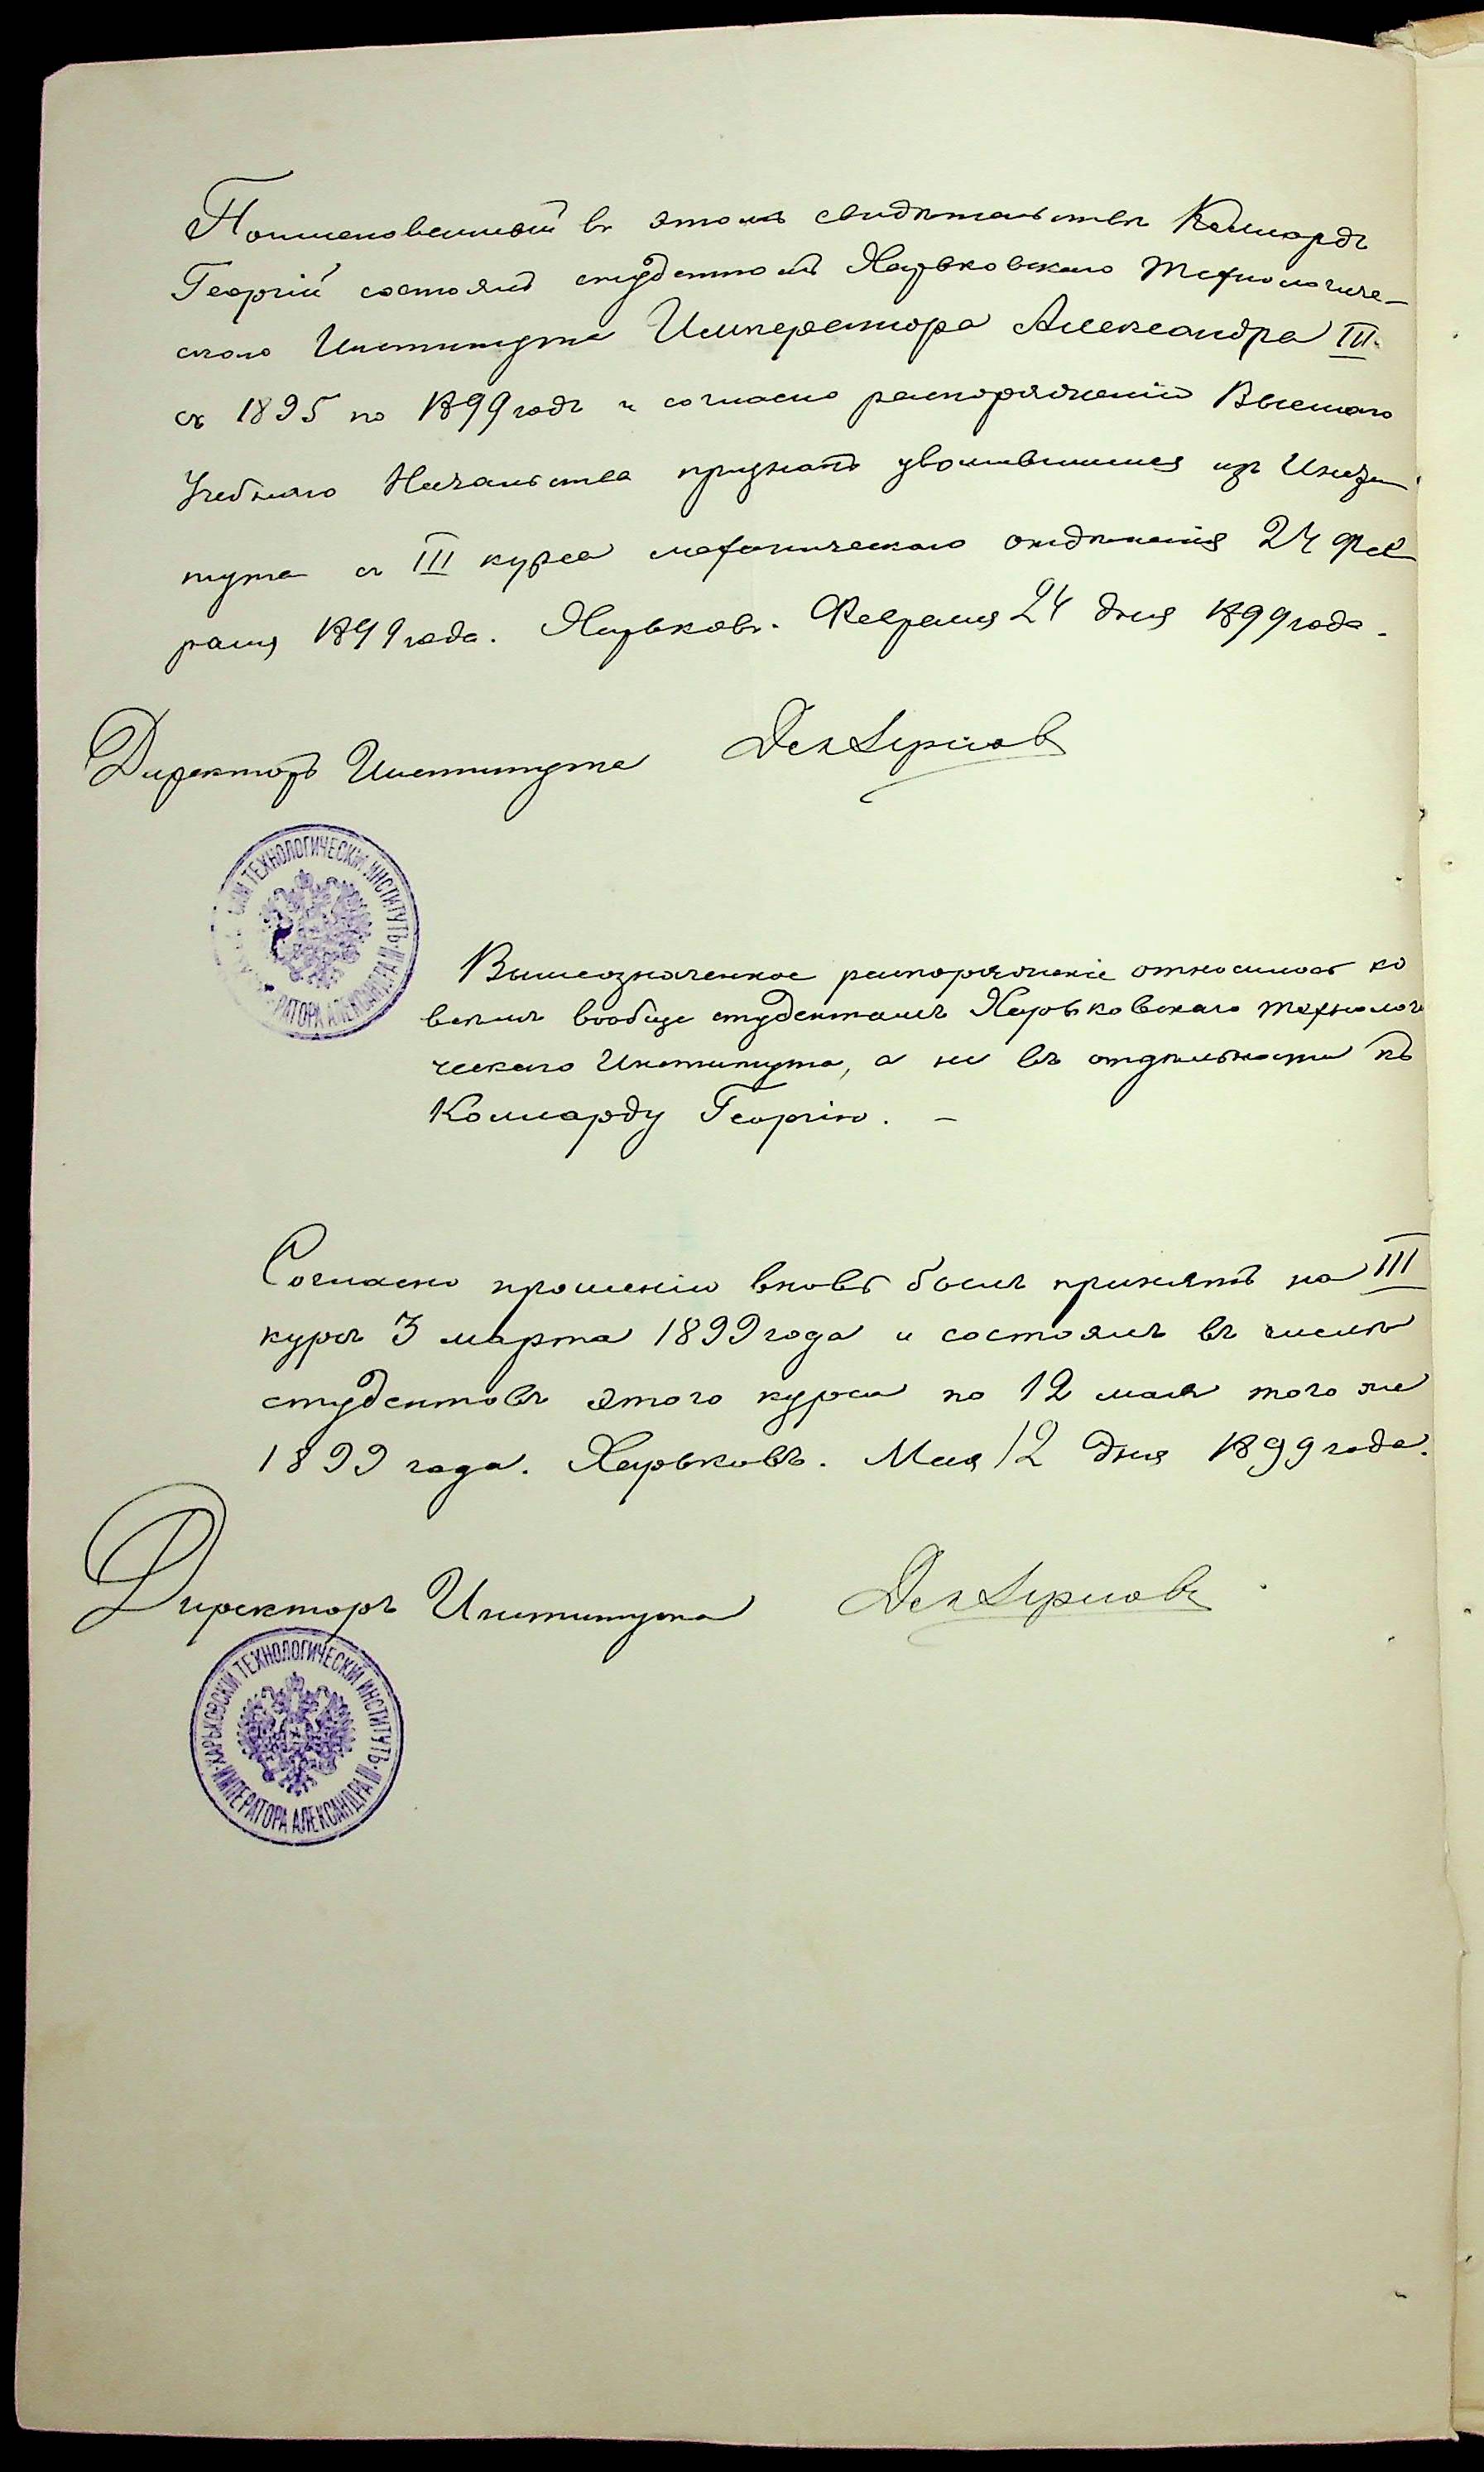 Поименованный въ этомъ свидѣтельствѣ Коллардъ
Георгій состоялъ студентомъ Харьковскаго Технологиче-
скаго Института Императора Александра III
съ 1895 по 1899 годъ и согласно распоряженію Высшаго
Учебнаго Начальства признанъ уволившимся изъ Инсти
тута съ III курса механическаго отдѣленія 24 Фев
раля 1899 года. Харьковъ. Февраля 24 дня 1899 года.
Директоръ Института
СКІЙ ТЕХНОЛОГИЧЕСКІЙ ИНСТИТУТЪ
РАТОРА АЛЕКСАНДРА III
Вышеозначенное распоряженіе относилось ко
всѣмъ вообще студентамъ Харьковскаго Технологи
ческаго Института, а не въ отдѣльности къ
Колларду Георгію. –
Согласно прошенію вновь былъ принятъ на III
курсъ 3 марта 1899 года и состоялъ въ числѣ
студентовъ этого курса по 12 мая того же
1899 года. Харьковъ. Мая 12 дня 1899 года.
Директоръ Института
ХАРЬКОВСКІЙ ТЕХНОЛОГИЧЕСКІЙ ИНСТИТУТЪ
ИМПЕРАТОРА АЛЕКСАНДРА III